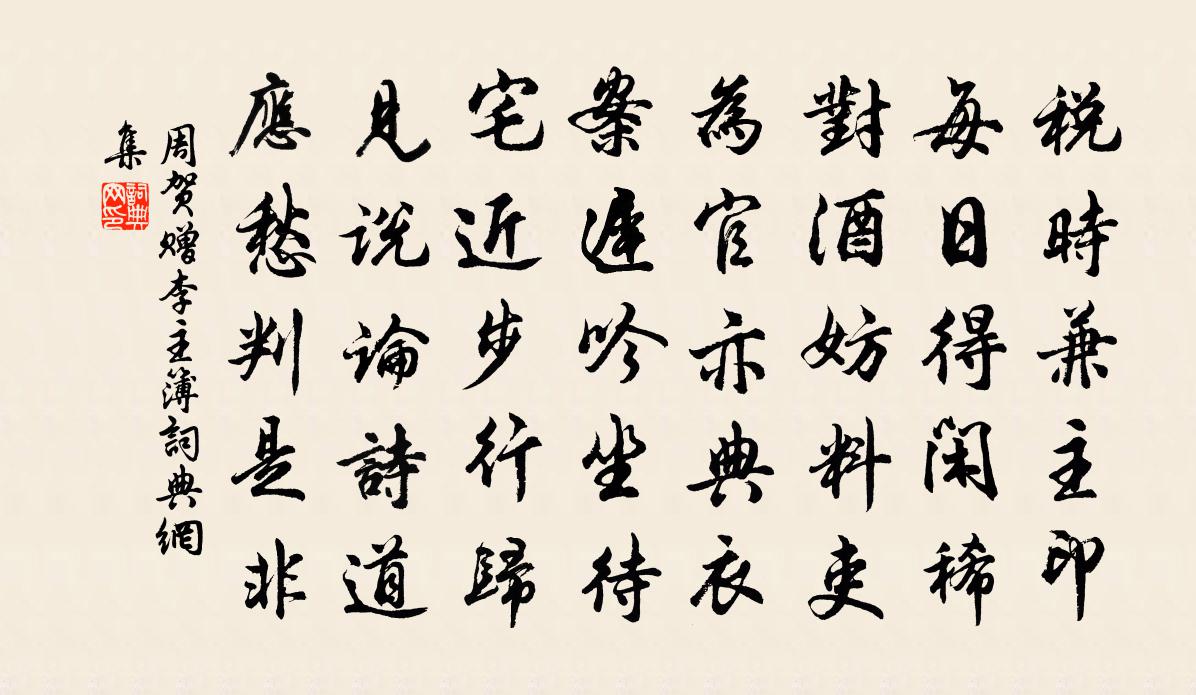 税時兼主印
每日得閑稀
對酒妨料吏
為官亦典衣
案遲吟坐待
宅近步行歸
見説論詩道
應愁判是非
周贺赠李主簿詞典網
集
詞典网印